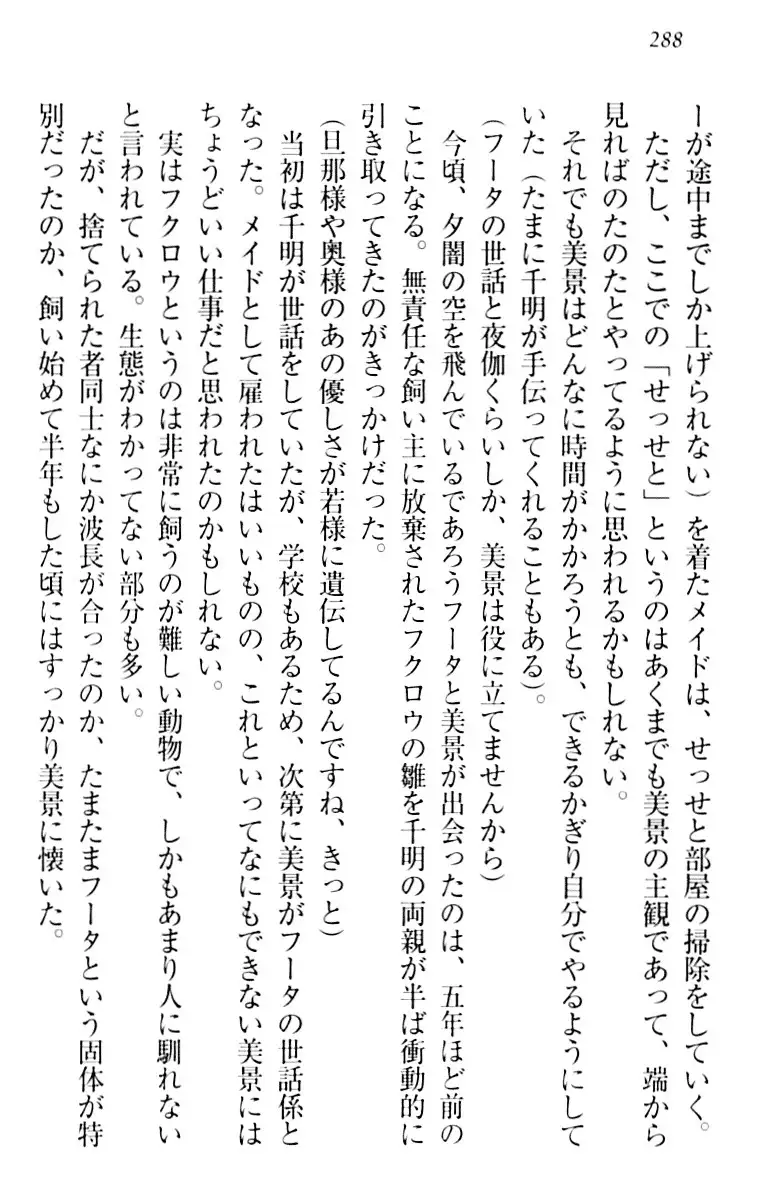 288
ーが途中までしか上げられない）を着たメイドは、せっせと部屋の掃除をしていく。
ただし、ここでの「せっせと」というのはあくまでも美景の主観であって、端から
見ればのたのたとやってるように思われるかもしれない。
それでも美景はどんなに時間がかかろうとも、できるかぎり自分でやるようにして
いた（たまに千明が手伝ってくれることもある）。
（フータの世話と夜伽くらいしか、美景は役に立てませんから）
今頃、夕闇の空を飛んでいるであろうフータと美景が出会ったのは、五年ほど前の
ことになる。無責任な飼い主に放棄されたフクロウの雛を千明の両親が半ば衝動的に
引き取ってきたのがきっかけだった。
（旦那様や奥様のあの優しさが若様に遺伝してるんですね、きっと）
当初は千明が世話をしていたが、学校もあるため、次第に美景がフータの世話係と
なった。メイドとして雇われたはいいものの、これといってなにもできない美景には
ちょうどいい仕事だと思われたのかもしれない。
実はフクロウというのは非常に飼うのが難しい動物で、しかもあまり人に馴れない
と言われている。生態がわかってない部分も多い。
だが、捨てられた者同士なにか波長が合ったのか、たまたまフータという固体が特
別だったのか、飼い始めて半年もした頃にはすっかり美景に懐いた。